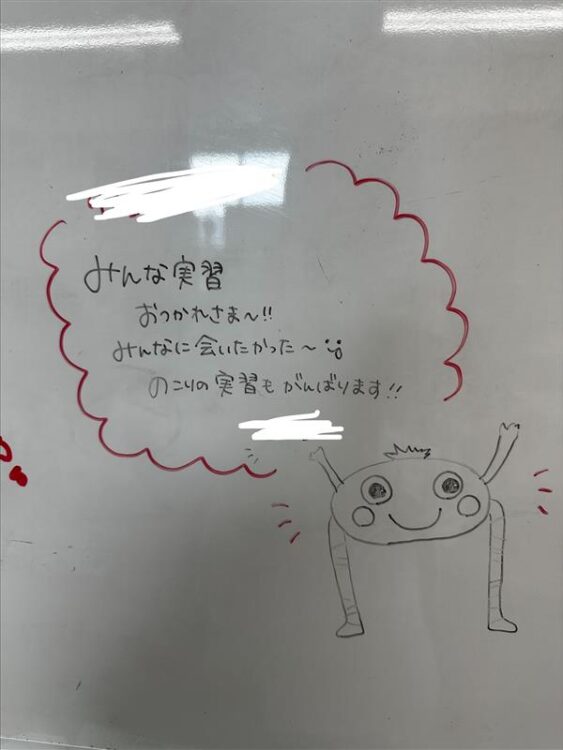 みんな実習
おつかれさま〜!!
みんなに会いたかった〜
のこりの実習もがんばります!!